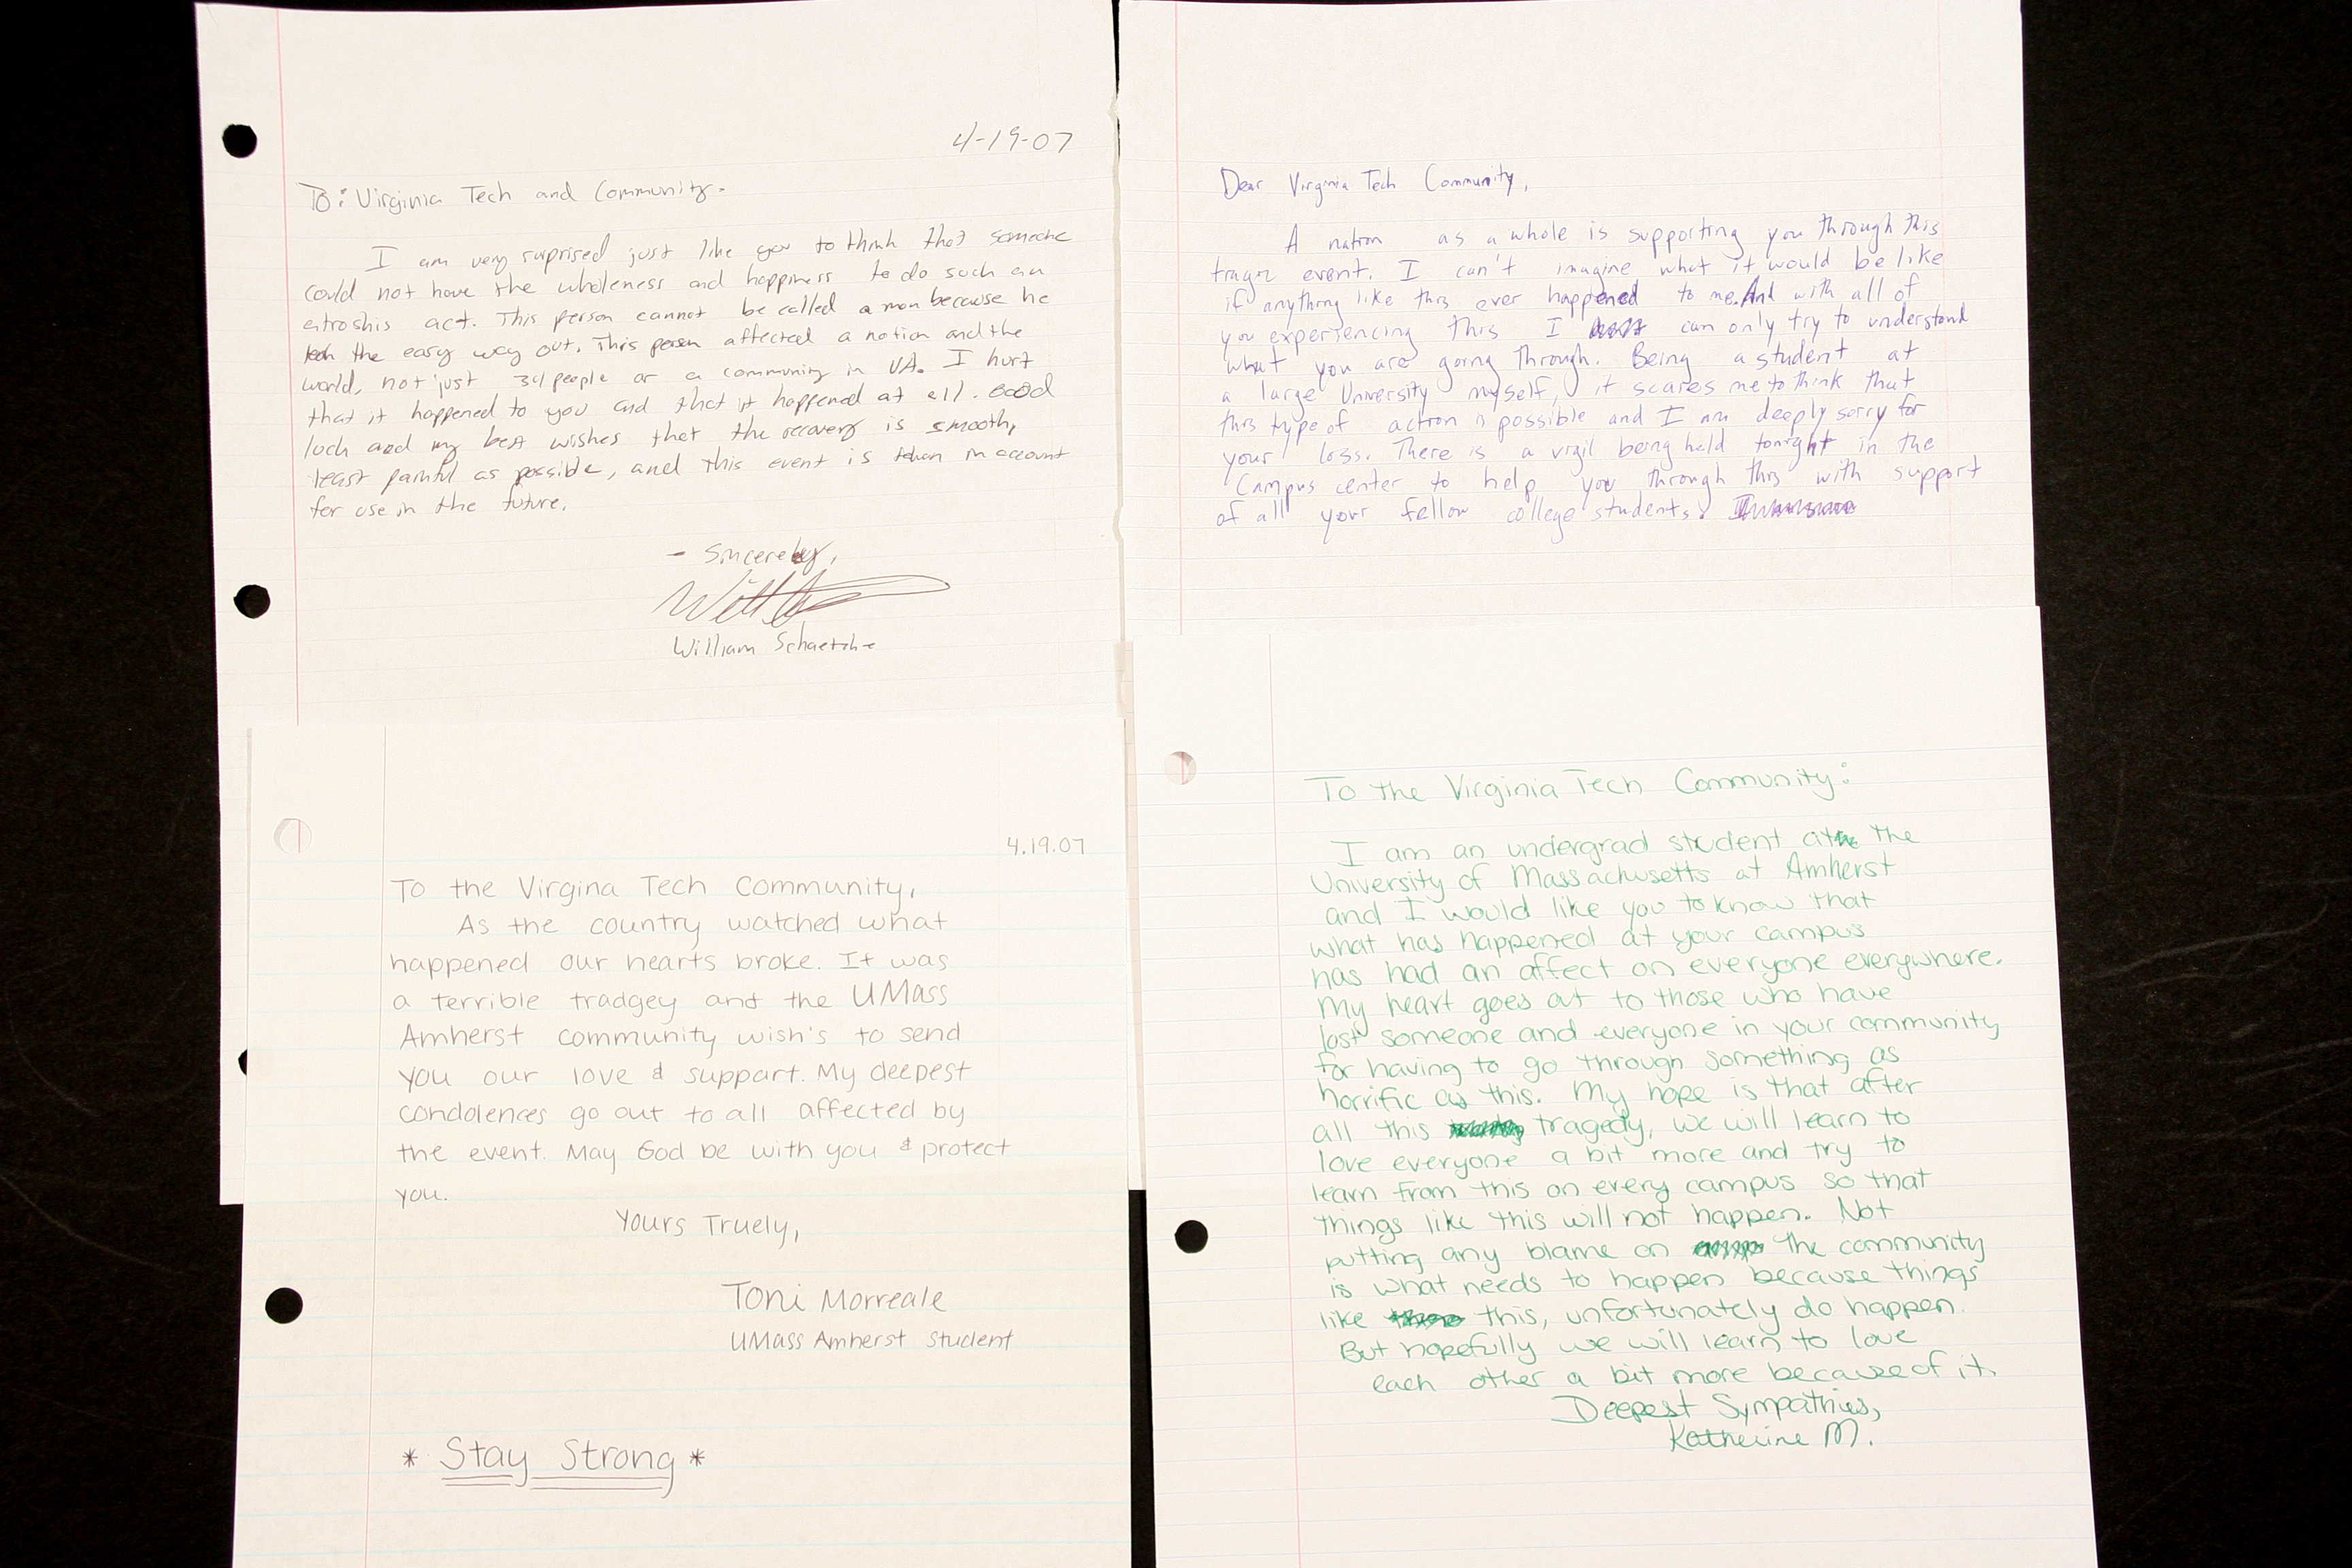 4-19-07
To: Virginia Tech and Community.
I am very surprised just like you to think that someone
could not have the wholeness and happiness to do such an
atroshis act. This person cannot be called a man because he
the easy way out. This person affected a nation and the
world, not just 34 people or a community in VA. I hurt
that it happened to you and that it happened at all. Good
luck and my best wishes that the recovery is smooth,
least painful as possible, and this event is taken in account
for use in the future.
- Sincereley,
William
Dear Virginia Tech Community,
A nation as a whole is supporting you through this
tragic event. I can't imagine what it would be like
if anything like this ever happened to me. And with all of
you experiencing this I can only try to understand
what you are going through. Being a student at
a large University myself, it scares me to think that
this type of action is possible and I am deeply sorry for
your loss. There is a vigil being held tonight in the
Campus center to help you through this with support
of all your fellow college students.
4.19.07
To the Virgina Tech Community,
As the country watched what
happened our hearts broke. It was
a terrible tradgey and the UMass
Amherst community wish's to send
you our love & support. My deepest
condolences go out to all affected by
the event. May God be with you & protect
you.
Yours Truely,
Toni Morreale
UMass Amherst Student
* Stay Strong *
To the Virginia Tech Community:
I am an undergrad student at the
University of Massachusetts at Amherst
and I would like you to know that
what has happened at your campus
has had an affect on everyone everywhere.
My heart goes out to those who have
lost someone and everyone in your community
for having to go through something as
horrific as this. My hope is that after
all this tragedy, we will learn to
love everyone a bit more and try to
learn from this on every campus so that
things like this will not happen. Not
putting any blame on the community
is what needs to happen because things
like this, unfortunately do happen.
But hopefully we will learn to love
each other a bit more because of it.
Deepest Sympathies,
Katherine M.